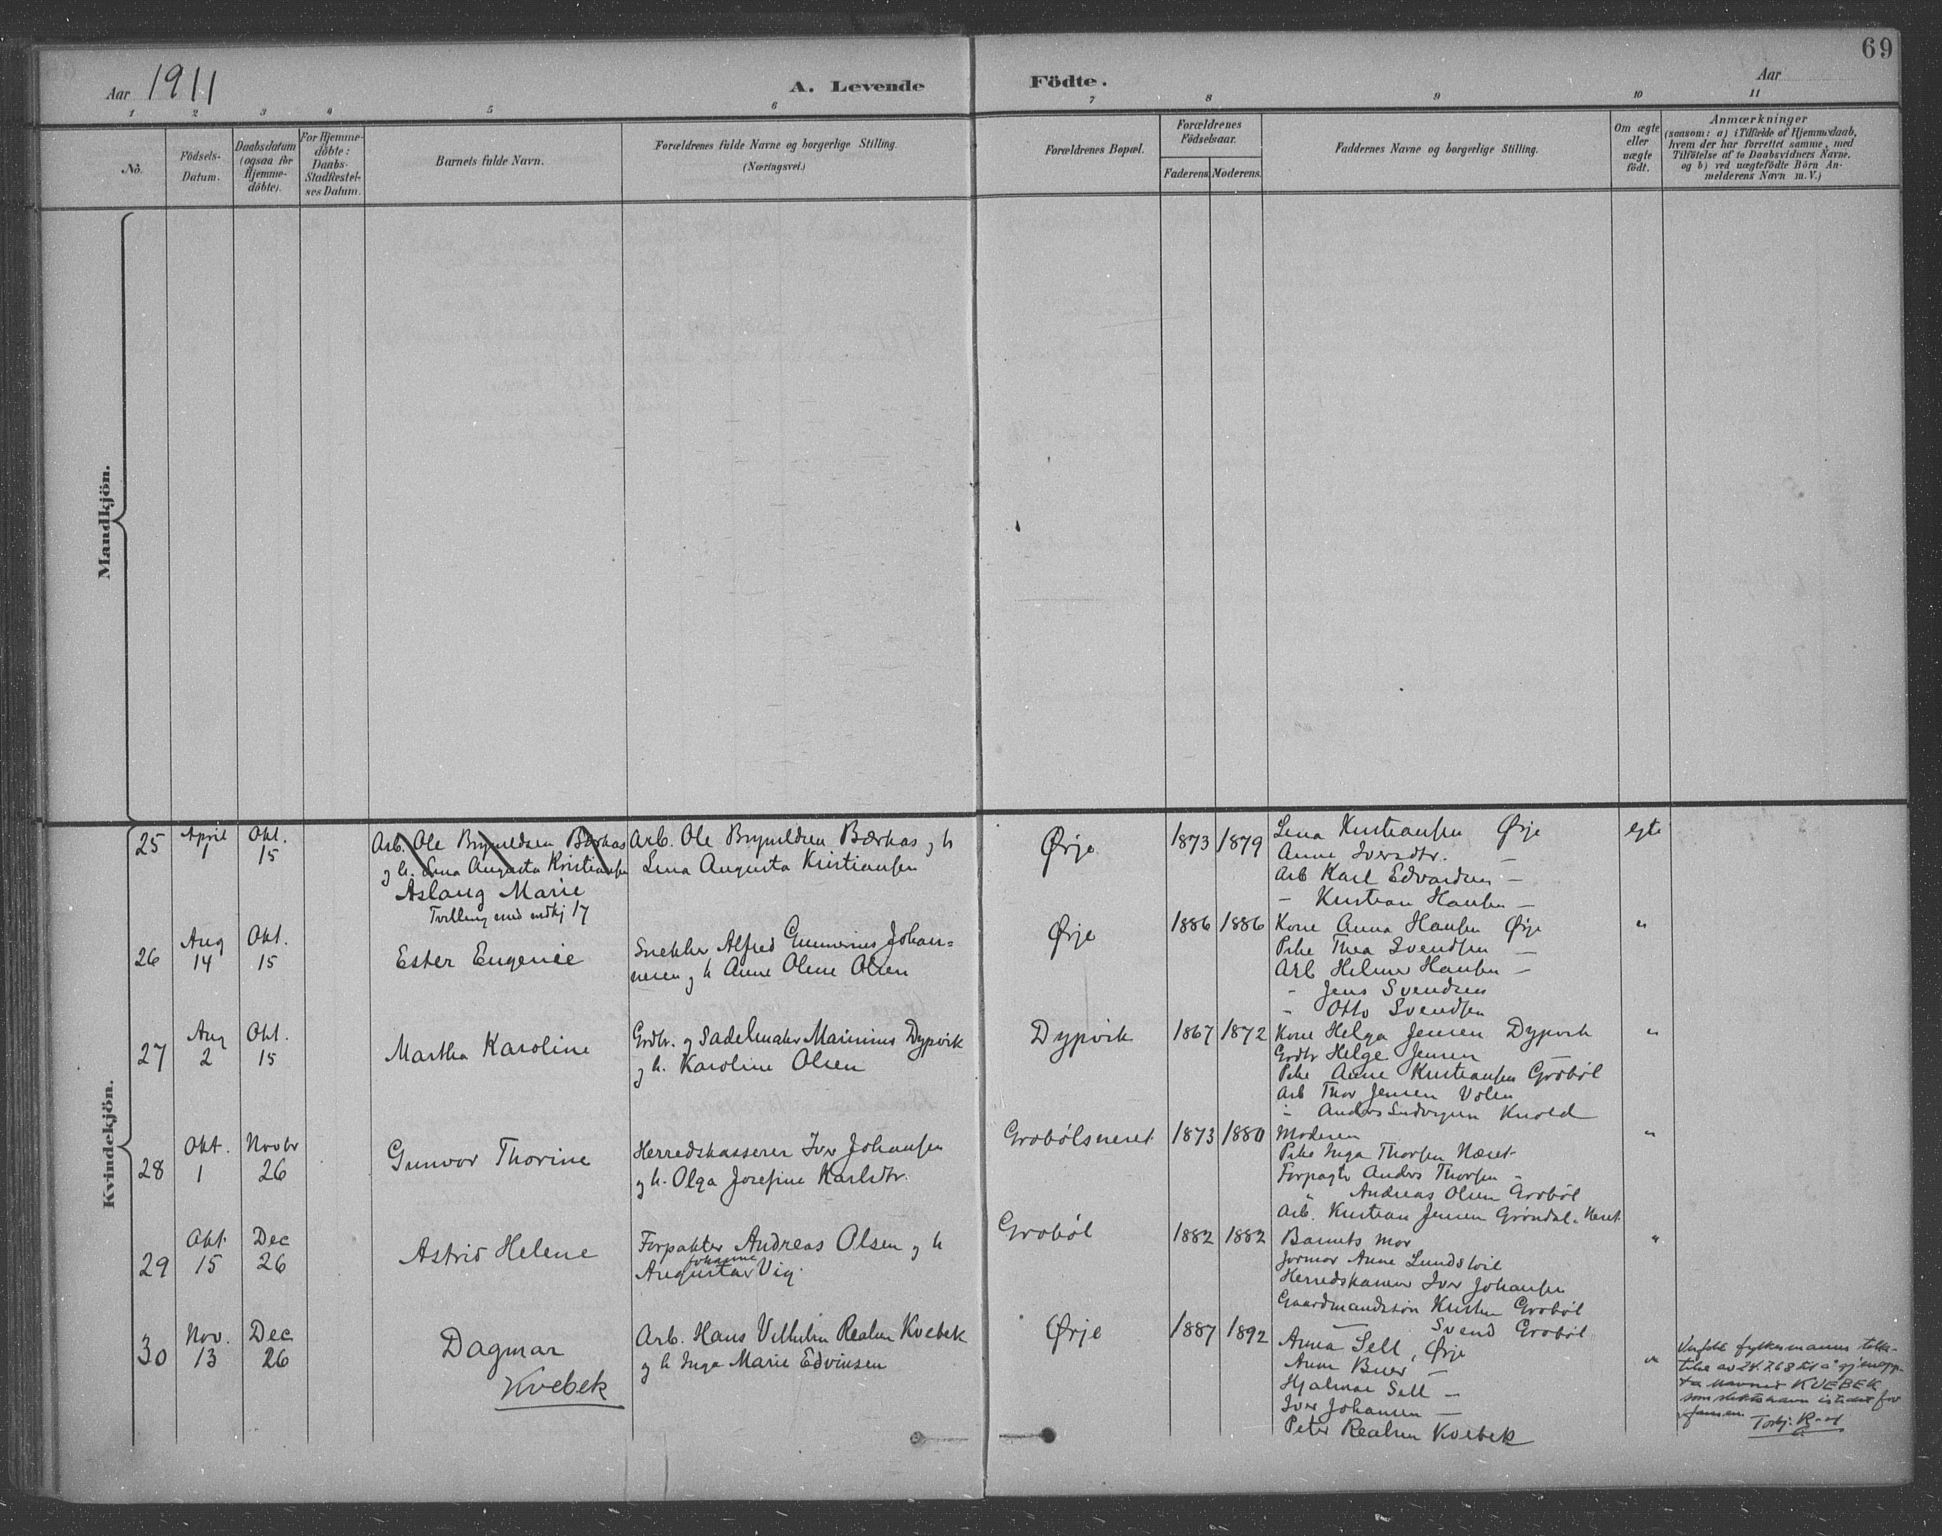 69
Aar 1911
A. Levende Födte.
Aar
1 2 3 4 5 6 7 8 9 10 11
No.
Födsels-
Datum.
Daabsdatum
(ogsaa for
Hjemme-
döbte).
For Hjemme-
döbte:
Daabs-
Stadfæstel-
ses Datum.
Barnets fulde Navn.
Forældrenes fulde Navne og borgerlige Stilling.
(Næringsvei.)
Forældrenes Bopæl.
Forældrenes
Födselsaar.
Faderens. Moderens.
Faddernes Navne og borgerlige Stilling.
Om ægte
eller
uægte
födt.
Anmærkninger
(saasom: a) i Tilfælde af Hjemmedaab,
hvem der har forrettet samme, med
Tilföielse af to Daabsvidners Navne,
og b) ved uægtefödte Börn An-
melderens Navn m. V.)
Mandkjön.
Kvindekjön.
25
April
1
Okt.
15
Arb. Ole Brynildsen Bærkas
og h. Lina Augusta Kristiansen
Aslaug Marie
Tvilling med mdkj 17
Arb. Ole Brynildsen Bærkas og h
Lina Augusta Kristiansen
Ørje
1873 1879
Lina Kristiansen Ørje
Anne Iversdtr. —
Arb Karl Edvardsen —
- Kristian Hansen —
egte
26
Aug
14
Okt.
15
Ester Eugenie
Snekker Alfred Gunnerius Johan-
nesen og h Anne Oline Olsen
Ørje
1886 1886
Kone Anna Hansen Ørje
Pike Thea Svendsen —
Arb Helmer Hansen —
- Jens Svendsen
- Otto Svendsen
"
27
Aug
2
Okt.
15
Martha Karoline
Grdbr. og Sadelmaker Marinius Dypvik
og h. Karoline Olsen
Dypvik
1867 1872
Kone Helga Jensen Dypvik
Grdbr Helge Jensen —
Pike Anne Kristiansen Grobøl
Arb Thor Jensen Volen
- Anders Ludvigsen Knold
"
28
Okt.
1
Novbr
26
Gunvor Thorine
Herredskasserer Iver Johansen
og h. Olga Josefine Karlsdtr.
Grobølsneret
1873 1880
Moderen
Pike Inga Thorsen Næret
Forpagter Anders Thorsen -
" Andreas Olsen Grobøl
Arb. Kristian Jensen Grøndal - Neret
"
29
Okt.
15
Dec
26
Astrid Helene
Forpakter Andreas Olsen og h
Johanne
Augusta Vig.
Grobøl
1882 1882
Barnets mor
Jormor Anne Lundstvil
Herredskasserer Iver Johansen
Gaardmandssøn Kristen Grobøl
— Svend Grobøl
"
30
Nov.
13
Dec
26
Dagmar
Kvebek
Arb. Hans Vilhelm Realsen Kvebek
og h Inga Marie Edvinsen
Ørje
1887 1892
Anna Sell, Ørje
Anna Buer —
Hjalmar Sell —
Iver Johansen —
Peter Realsen Kvebek
"
fylkesmannens tilla-
telse av 24.7.68 til å gjenopp-
ta navnet KVEBEK
som slektsnavn istedet for
Jansen